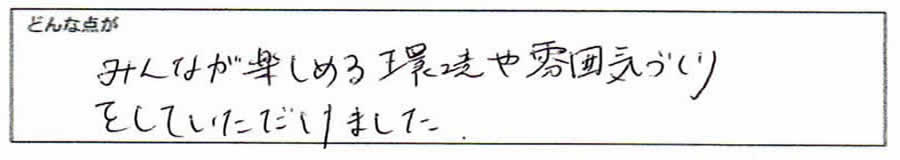 どんな点が
みんなが楽しめる環境や雰囲気づくり
をしていただけました.